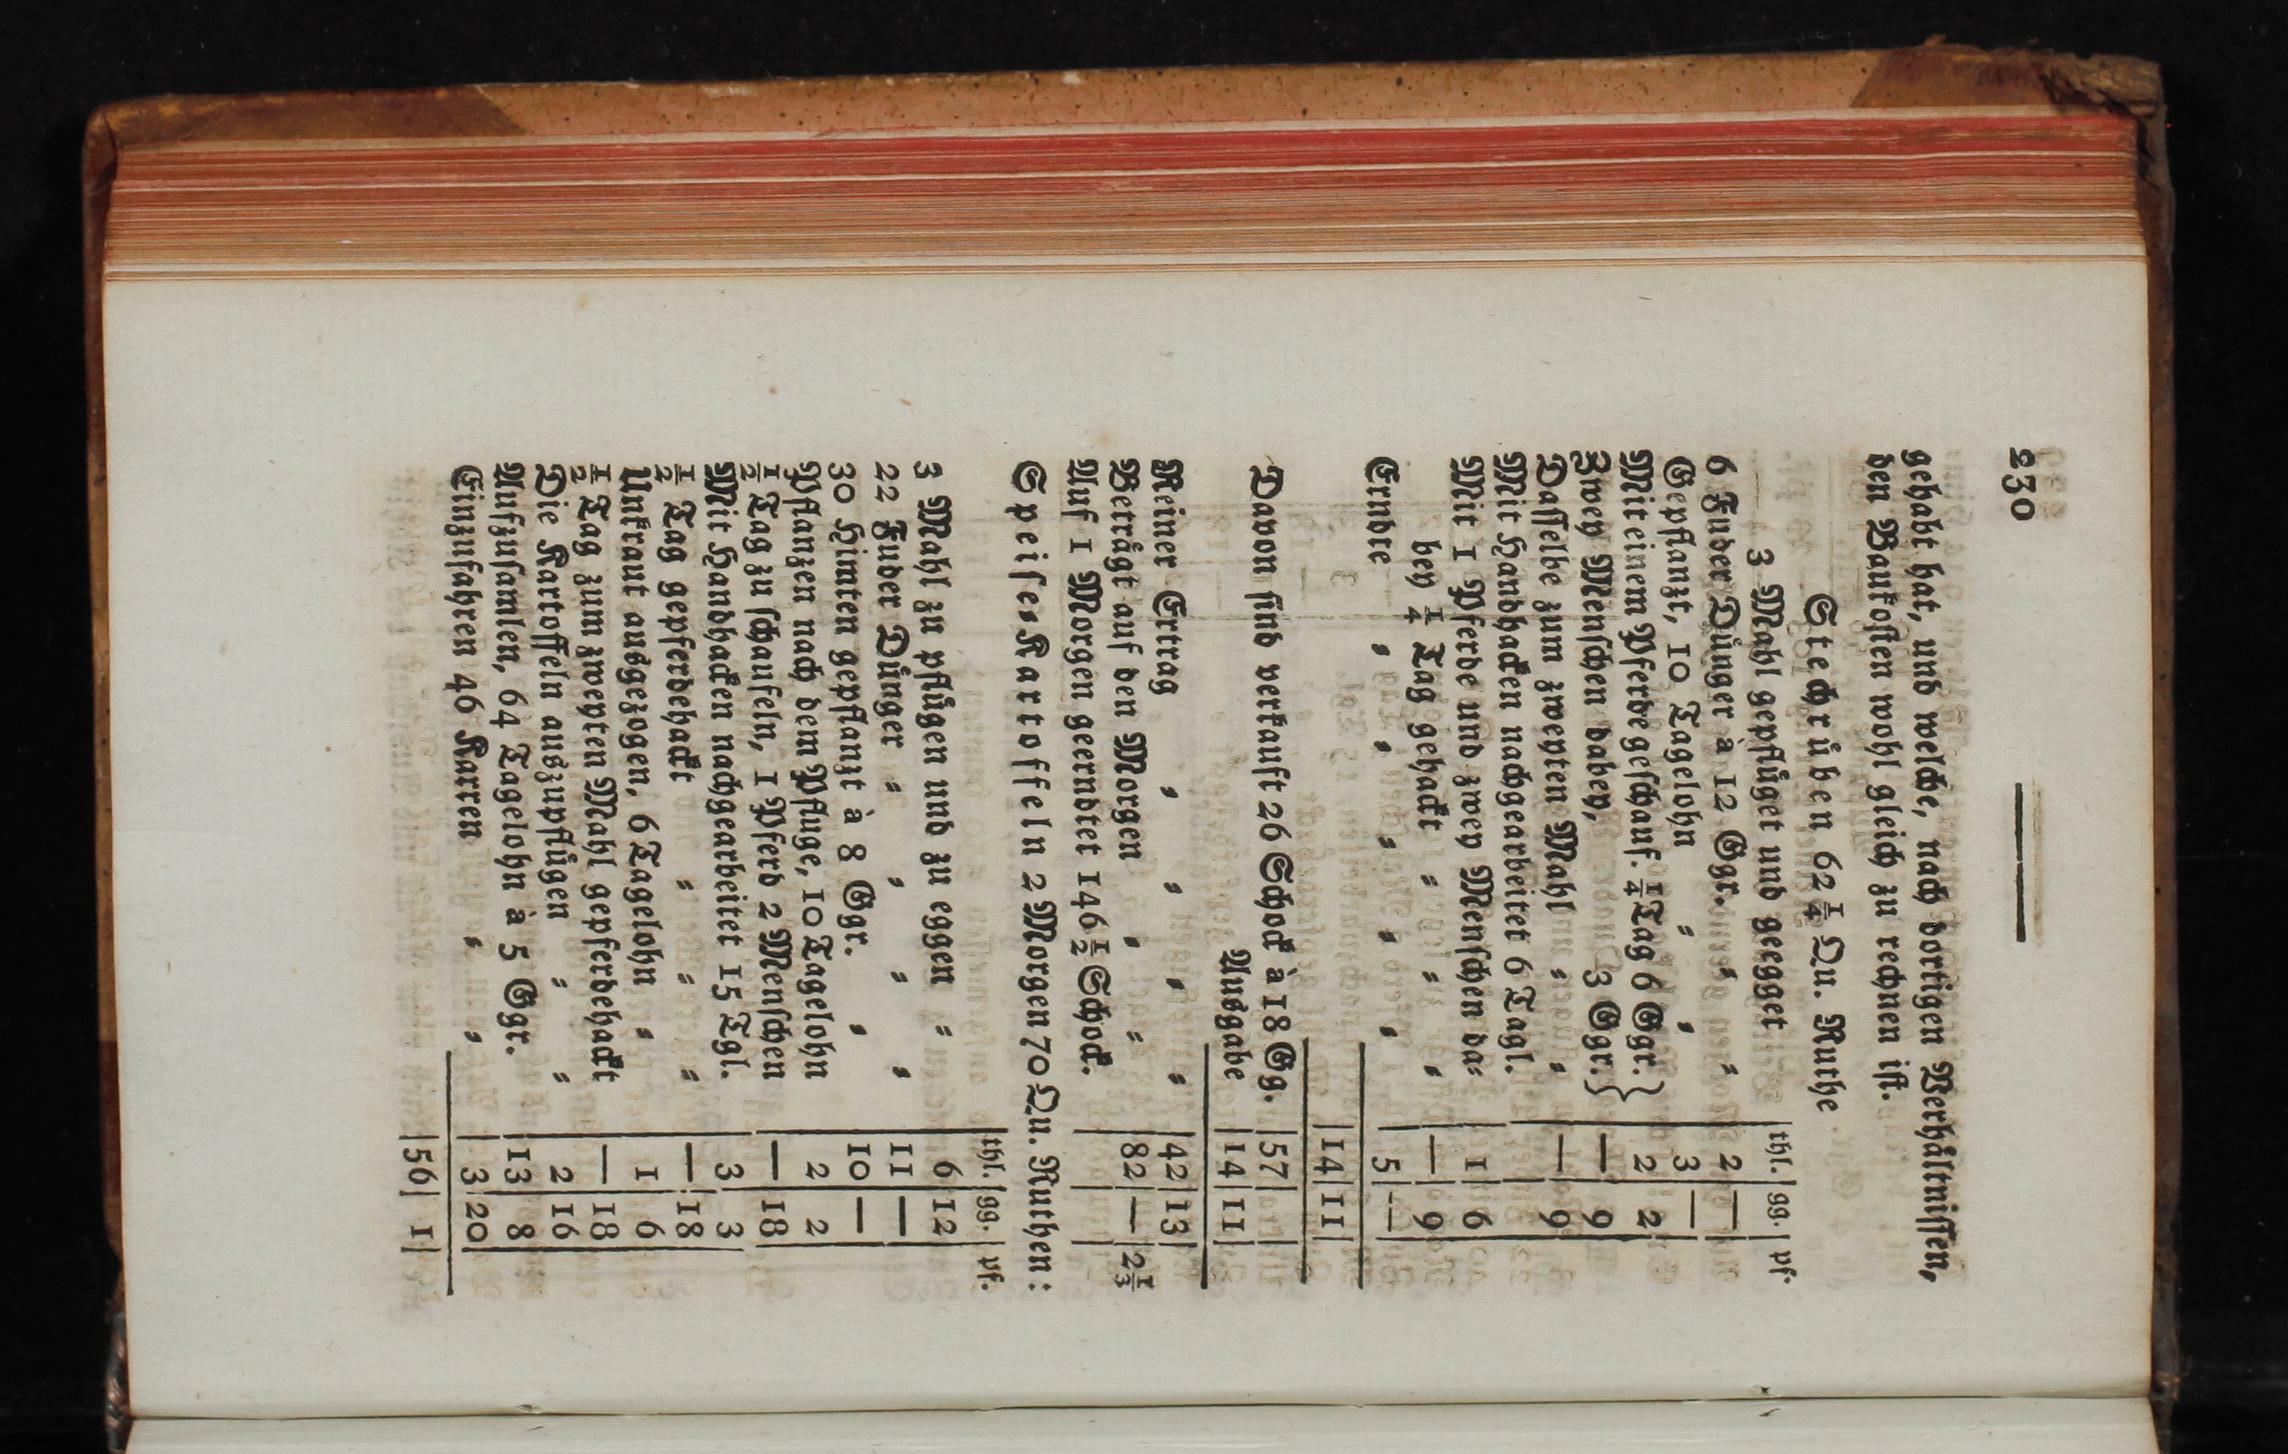 230
gehabt hat, und welche, nach dortigen Verhältnissen,
den Baukosten wohl gleich zu rechnen ist.
Steckrüben 62 1/4 Qu. Ruthe
thl. gg. pf.
3 Mahl gepflüget und geegget 2 —
6 Fuder Dünger à 12 Ggr. 3 —
Gepflanzt, 10 Tagelohn 2 2
Mit einem Pferde geschauf. 1/4 Tag 6 Ggr. }
Zwey Menschen dabey, 3 Ggr. } — 9
Dasselbe zum zweyten Mahl — 9
Mit Handhacken nachgearbeitet 6 Tagl. 1 6
Mit 1 Pferde und zwey Menschen da⸗
bey 1/4 Tag gehackt — 9
Erndte 5 —
14 11
Davon sind verkauft 26 Schock à 18 Gg. 57
Ausgabe 14 11
Reiner Ertrag 42 13
Beträgt auf den Morgen 82 — 2 1/3
Auf 1 Morgen geerndtet 146 1/2 Schock.
Speise⸗Kartoffeln 2 Morgen 70 Qu. Ruthen:
thl. gg. pf.
3 Mahl zu pflügen und zu eggen 6 12
22 Fuder Dünger 11 —
30 Himten gepflanzt à 8 Ggr. 10 —
Pflanzen nach dem Pfluge, 10 Tagelohn 2 2
1/2 Tag zu schaufeln, 1 Pferd 2 Menschen — 18
Mit Handhacken nachgearbeitet 15 Tgl. 3 3
1/2 Tag gepferdehackt — 18
Unkraut ausgezogen, 6 Tagelohn 1 6
1/2 Tag zum zweyten Mahl gepferdehackt — 18
Die Kartoffeln auszupflügen 2 16
Aufzusamlen, 64 Tagelohn à 5 Ggr. 13 8
Einzufahren 46 Karren 3 20
56 1